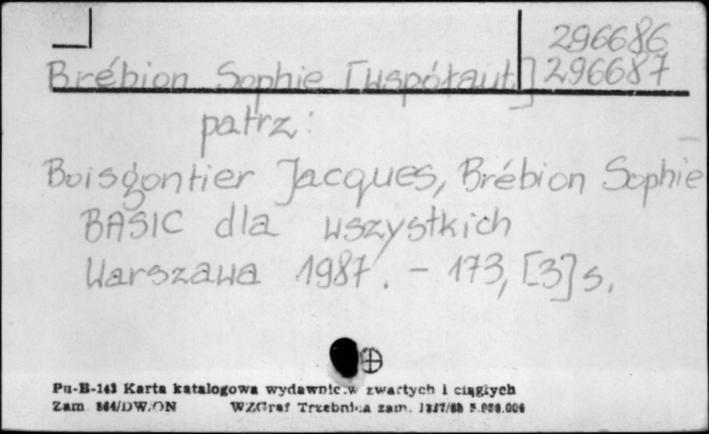 296686
Brébion Sophie [współaut.] 296687
patrz:
Boisgontier Jacques, Brébion Sophie
BASIC dla wszystkich
Warszawa 1987. - 173, [3] s.
Pu-B-143 Karta katalogowa wydawnic.w zwartych i ciągłych
Zam. 864/DW/ON WZGraf Trzebnica zam.